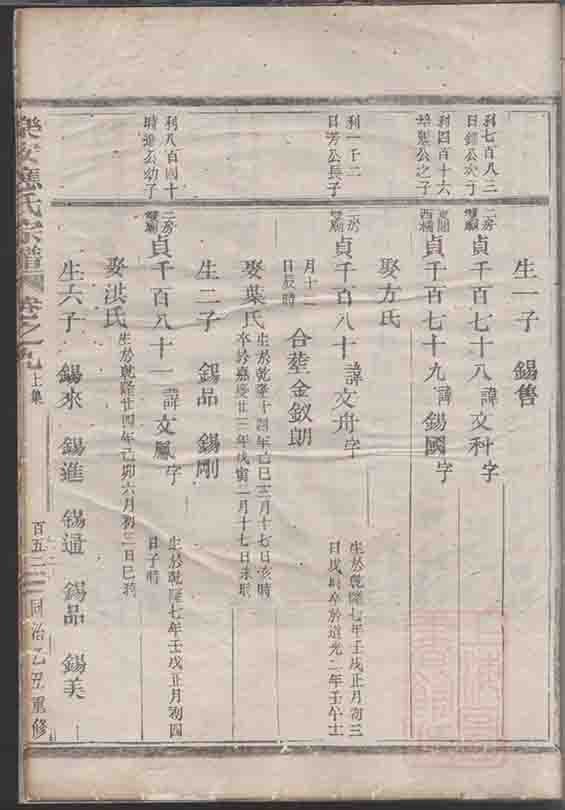 生一子 錫售
利七百八三
日鏳公次子
二房
貞千百七十八諱文科字
利四百十六
公之子
東閣
西橋
貞千百七十九諱錫國字
娶方氏
利一千二
日芳公長子
二房
貞千百八十諱文舟字
生於乾隆七年壬戌正月初三
日戌時卒於道光二年壬午十二
月十二
日辰時
合葬金釵朗
娶葉氏
生於乾隆十四年己巳三月十七日亥時
卒於嘉慶廿三年戊寅二月十七日未時
生二子 錫品 錫剛
利八百四十
時進公幼子
二房
貞千百八十一諱文鳳字
生於乾隆七年壬戌正月初四
日子時
娶洪氏
生於乾隆廿四年己卯六月初二日巳時
生六子 錫來 錫進 錫通 錫品 錫美
樂安應氏宗譜 卷之九 上集 百五二 同治乙丑重修